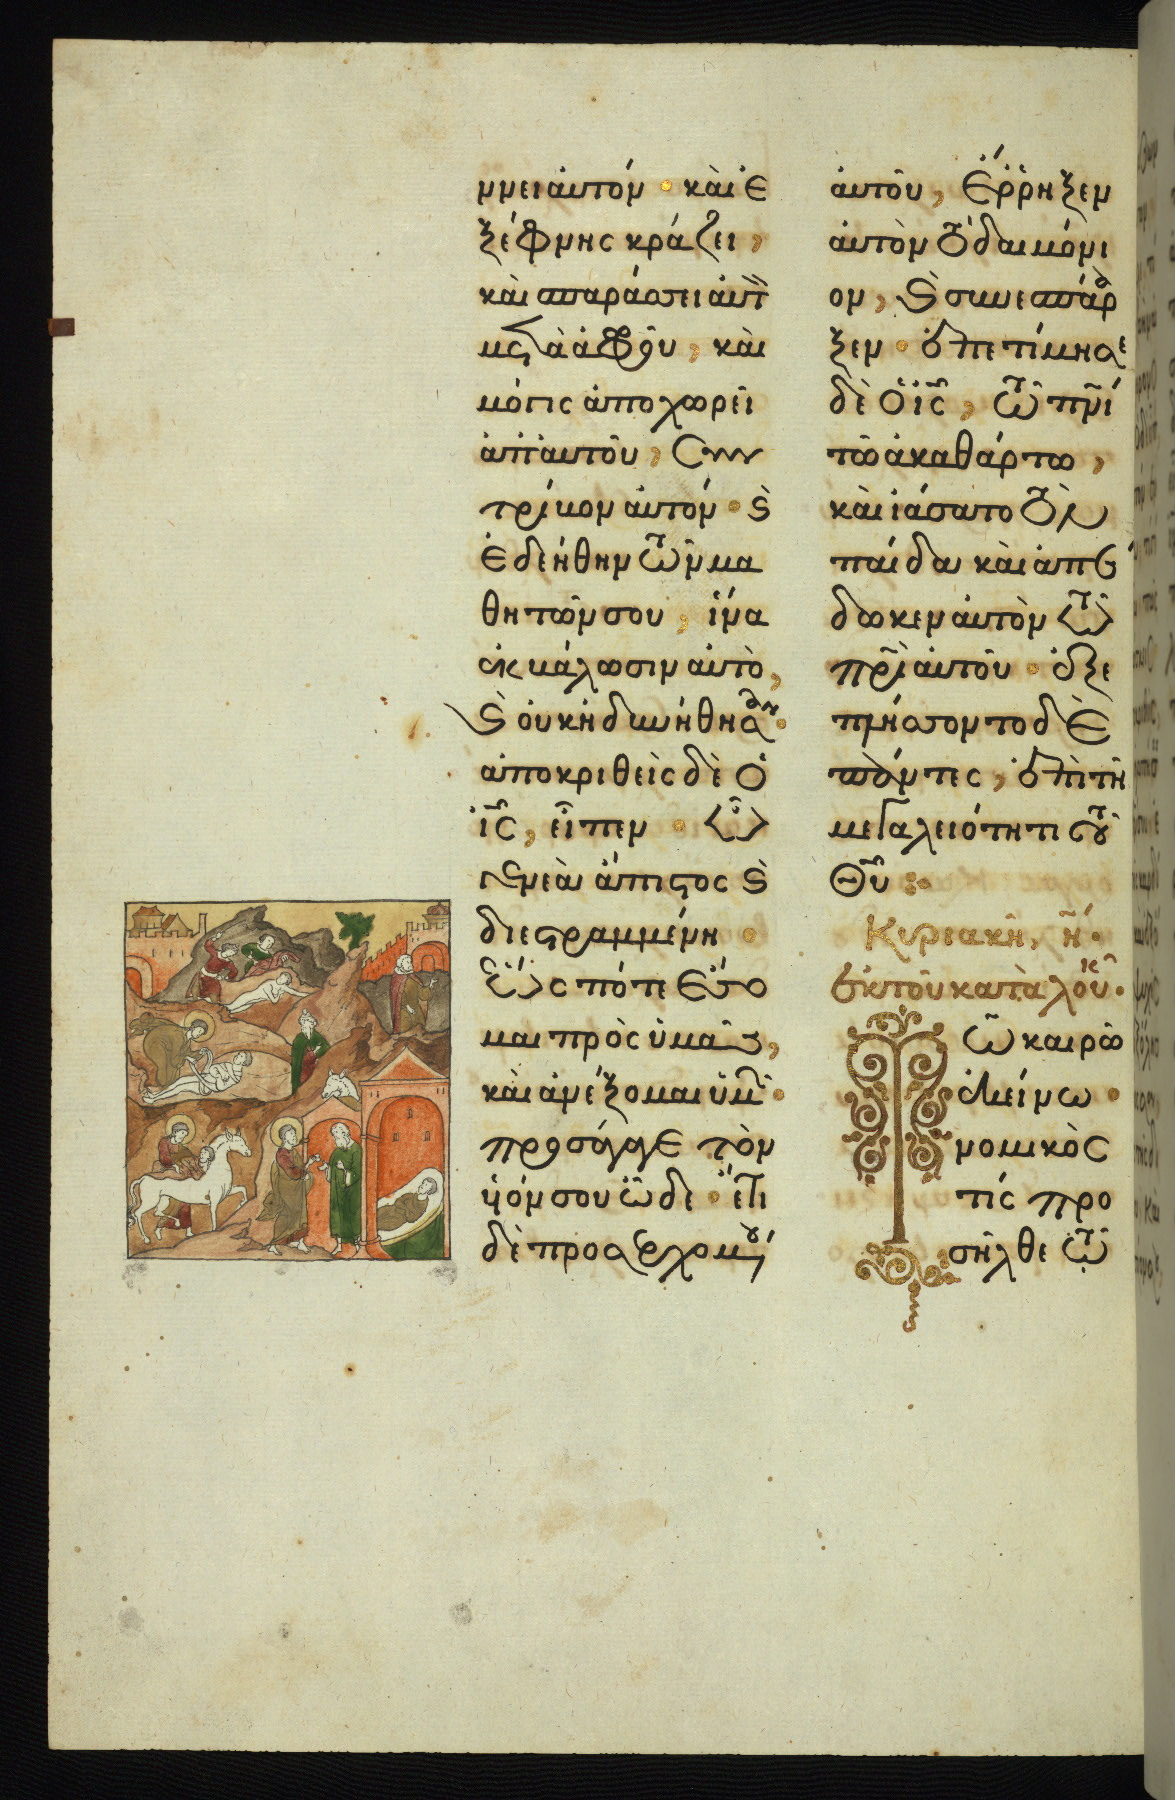 μνει αυτόν · καὶ ἐ
ξέφνης κράζει,
καὶ σπαράσσει αυτ
μετὰ ἀφροῦ, καὶ
μόγις ἀποχωρεῖ
ἀπ' αυτοῦ, συν
τρίβον αυτόν · ϗ
ἐδεήθην τῶν μα
θητῶν σου, ἵνα
ἐκβάλωσιν αυτὸ,
ϗ ουκ ἠδυνήθησαν ·
ἀποκριθεὶς δὲ ὁ
ις, εἶπεν · ὦ
γενεὰ ἄπιστος ϗ
διεστραμμένη ·
ἕως πότε ἔσο
μαι πρὸς ὑμᾶς,
καὶ ἀνέξομαι ὑμῶν ·
προσάγαγε τὸν
υἱόν σου ὧδε · ἔτι
δὲ προσερχομένου
αυτοῦ, ἔρρηξεν
αυτὸν τὸ δαιμόνι
ον, ϗ συνεσπάρα
ξεν · ἐπετίμησε
δὲ ὁ ις, τῶ πνι
τῶ ἀκαθάρτω,
καὶ ἰάσατο τὸν
παίδα καὶ ἀπέ
δωκεν αυτὸν τῶ
πρὶ αυτοῦ · ἐξε
πλήσσοντο δὲ
πάντες, ἐπὶ τῆ
μεγαλειότητι τοῦ
Θυ
Κυριακῆ, η ·
ἐκ τοῦ κατὰ λουκ ·
Τῶ καιρῶ
ἐκείνω ·
νομικὸς
τίς προ
σῆλθε τῶ